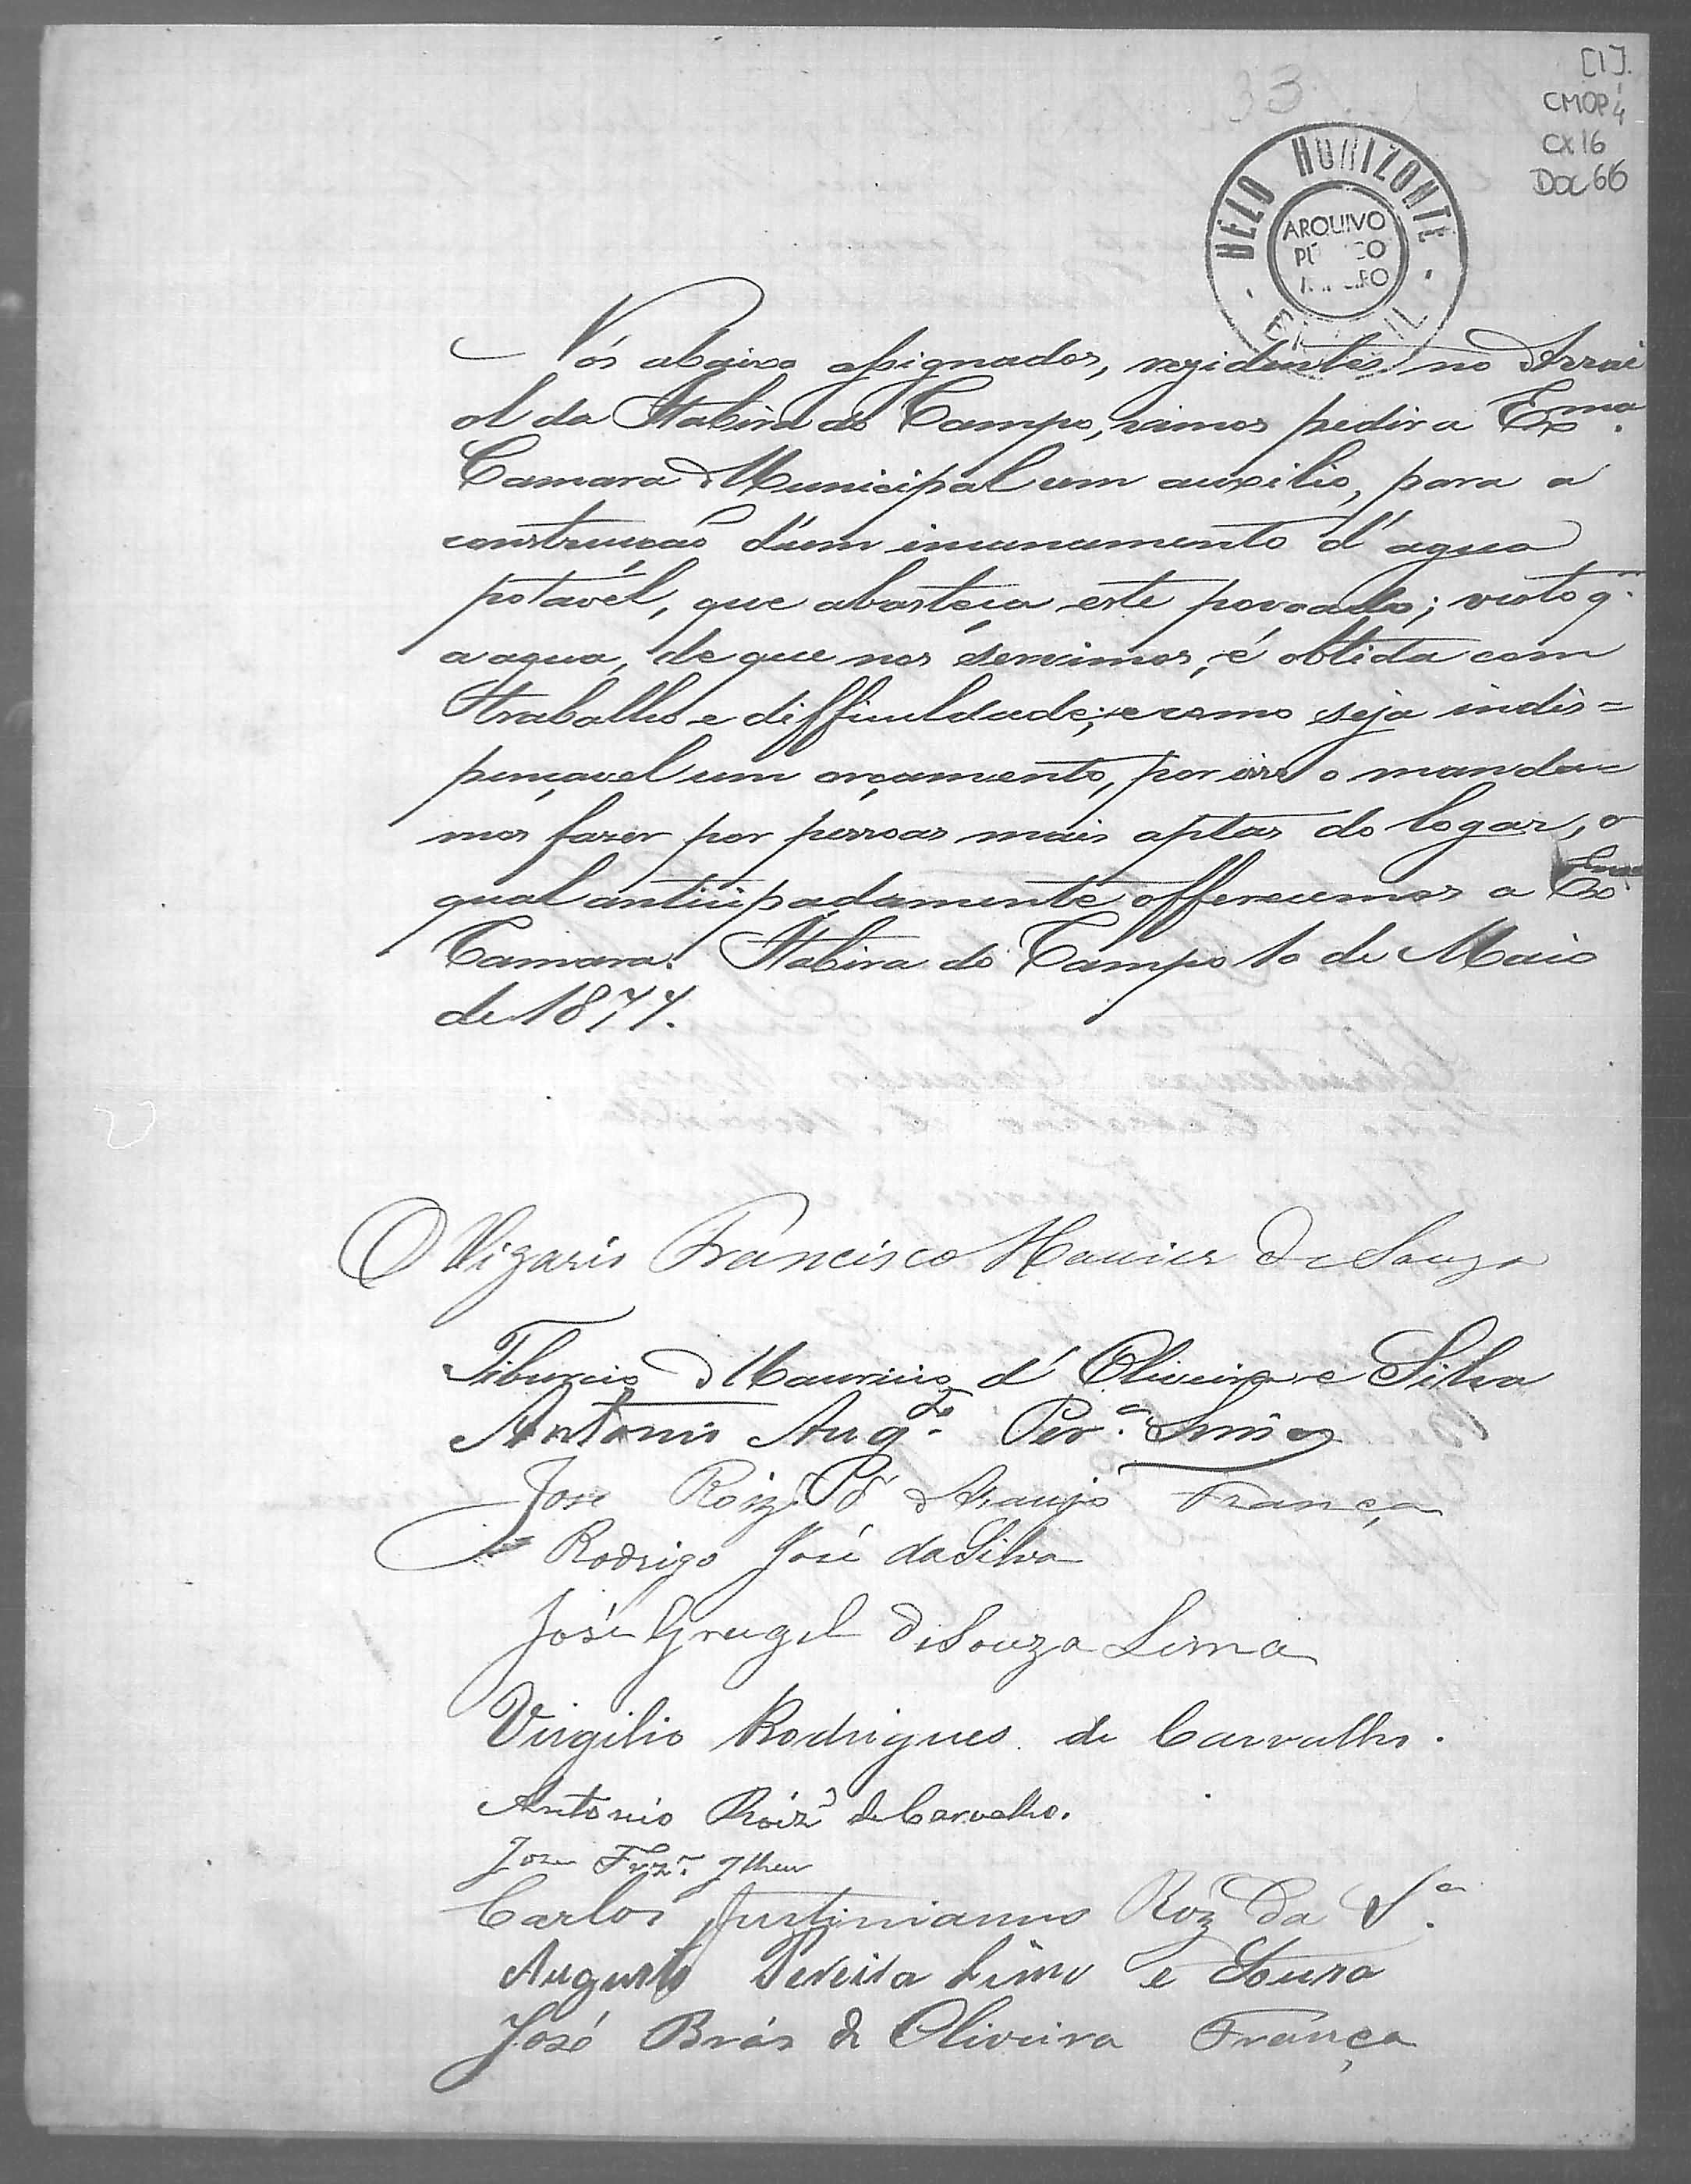 [1].
CMOP 4
CX 16
Doc 66
33
BELO HORIZONTE
ARQUIVO
Nós abaixo assignados, rezidentes no Arrai
al da Itabira do Campo, vimos pedir a Exma.
Camara Municipal um auxilio, para a
construcção d'um incanamento d'agua
potavél, que abasteça este povoado; visto q.
a agua, de que nos servimos, é obtida com
trabalho e difficuldade; e como seja indis=
pençavel um orçamento, por isso o manda=
mos fazer por pessoas mais aptas do logar, o
qual anticipadamente offerecemos a Exma
Camara. Itabira do Campo 10 de Maio
de 1877.
O Vigario Francisco Xavier de Souza
Tiburcio Mauricio d'Oliveira e Silva
Antonio Augto. Per.a Lima
José Roiz. d'Araujo França
Rodrigo José da Silva
José Gurgel de Souza Lima
Virgilio Rodrigues de Carvalho.
Antonio Roiz de Carvalho.
Carlos Justinianno Roz da S.a
Augusto Pereira Lima e Souza
José Brás de Oliveira França